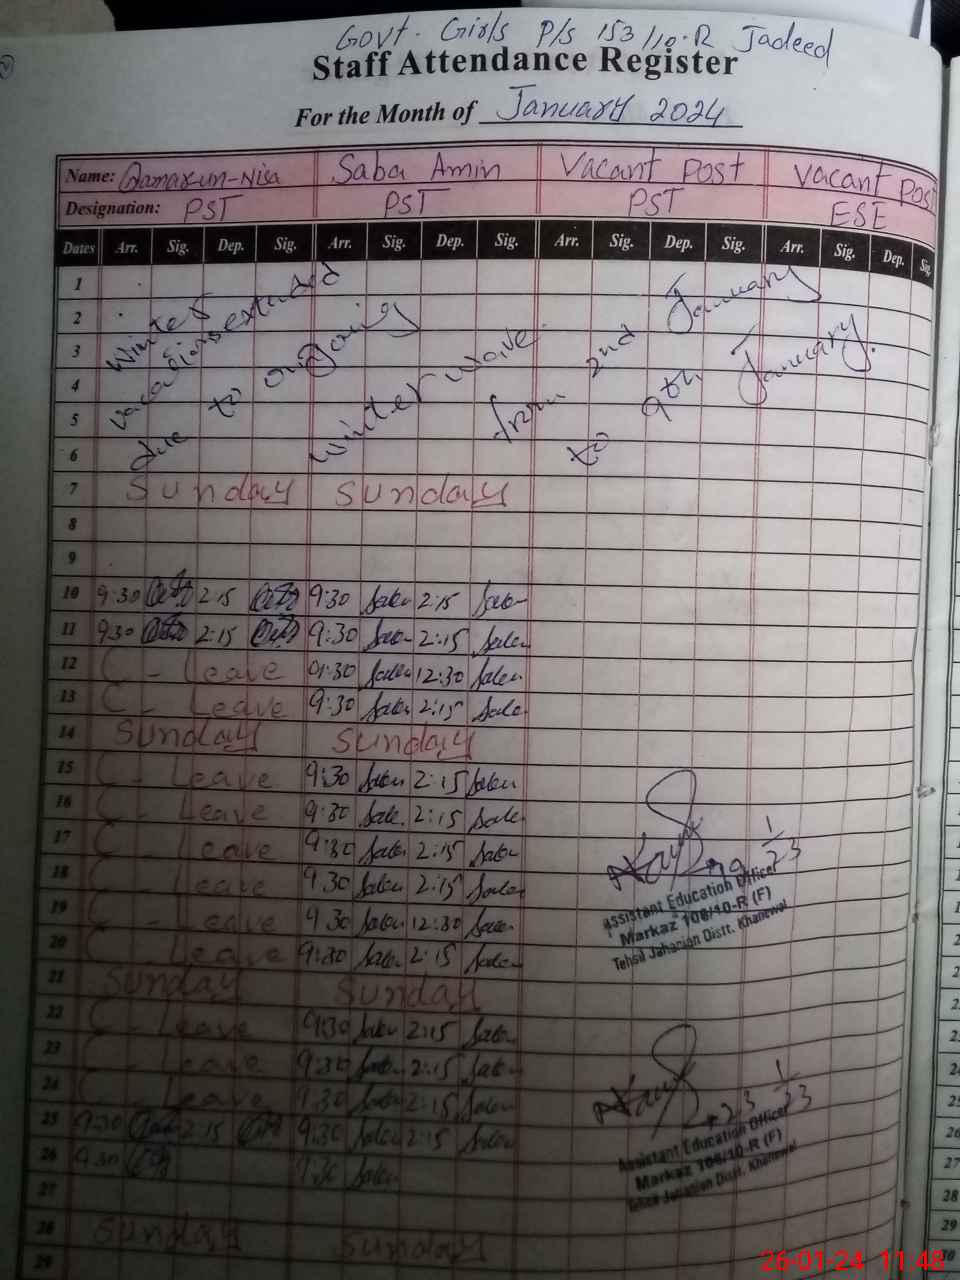 Govt. Girls P/S 153/10-R Jadeed
Staff Attendance Register
For the Month of January 2024
Name: Qamar-un-Nisa Saba Amin Vacant Post Vacant Post
Designation: PST PST PST ESE
Dates Arr. Sig. Dep. Sig. Arr. Sig. Dep. Sig. Arr. Sig. Dep. Sig. Arr. Sig. Dep. Sig.
1
2
3
4
5
6
Winter
vacations extended
due to ongoing
winter wave
from 2nd January
to 9th January.
7 Sunday Sunday
8
9
10 9:30 2:15 9:30 2:15
11 9:30 2:15 9:30 2:15
12 C - Leave 9:30 12:30
13 C - Leave 9:30 2:15
14 Sunday Sunday
15 C - Leave 9:30 2:15
16 C - Leave 9:30 2:15
17 C - Leave 9:30 2:15
18 C - Leave 9:30 2:15
19 C - Leave 9:30 12:30
20 C - Leave 9:30 2:15
21 Sunday Sunday
22 C - Leave 9:30 2:15
23 C - Leave 9:30 2:15
24 C - Leave 9:30 2:15
25 9:30 2:15 9:30 2:15
26 9:30 9:30
27
28 Sunday Sunday
29
Assistant Education Officer
Markaz 106/10-R (F)
Tehsil Jahanian Distt. Khanewal
Assistant Education Officer
Markaz 106/10-R (F)
Tehsil Jahanian Distt. Khanewal
26-01-24 11:48